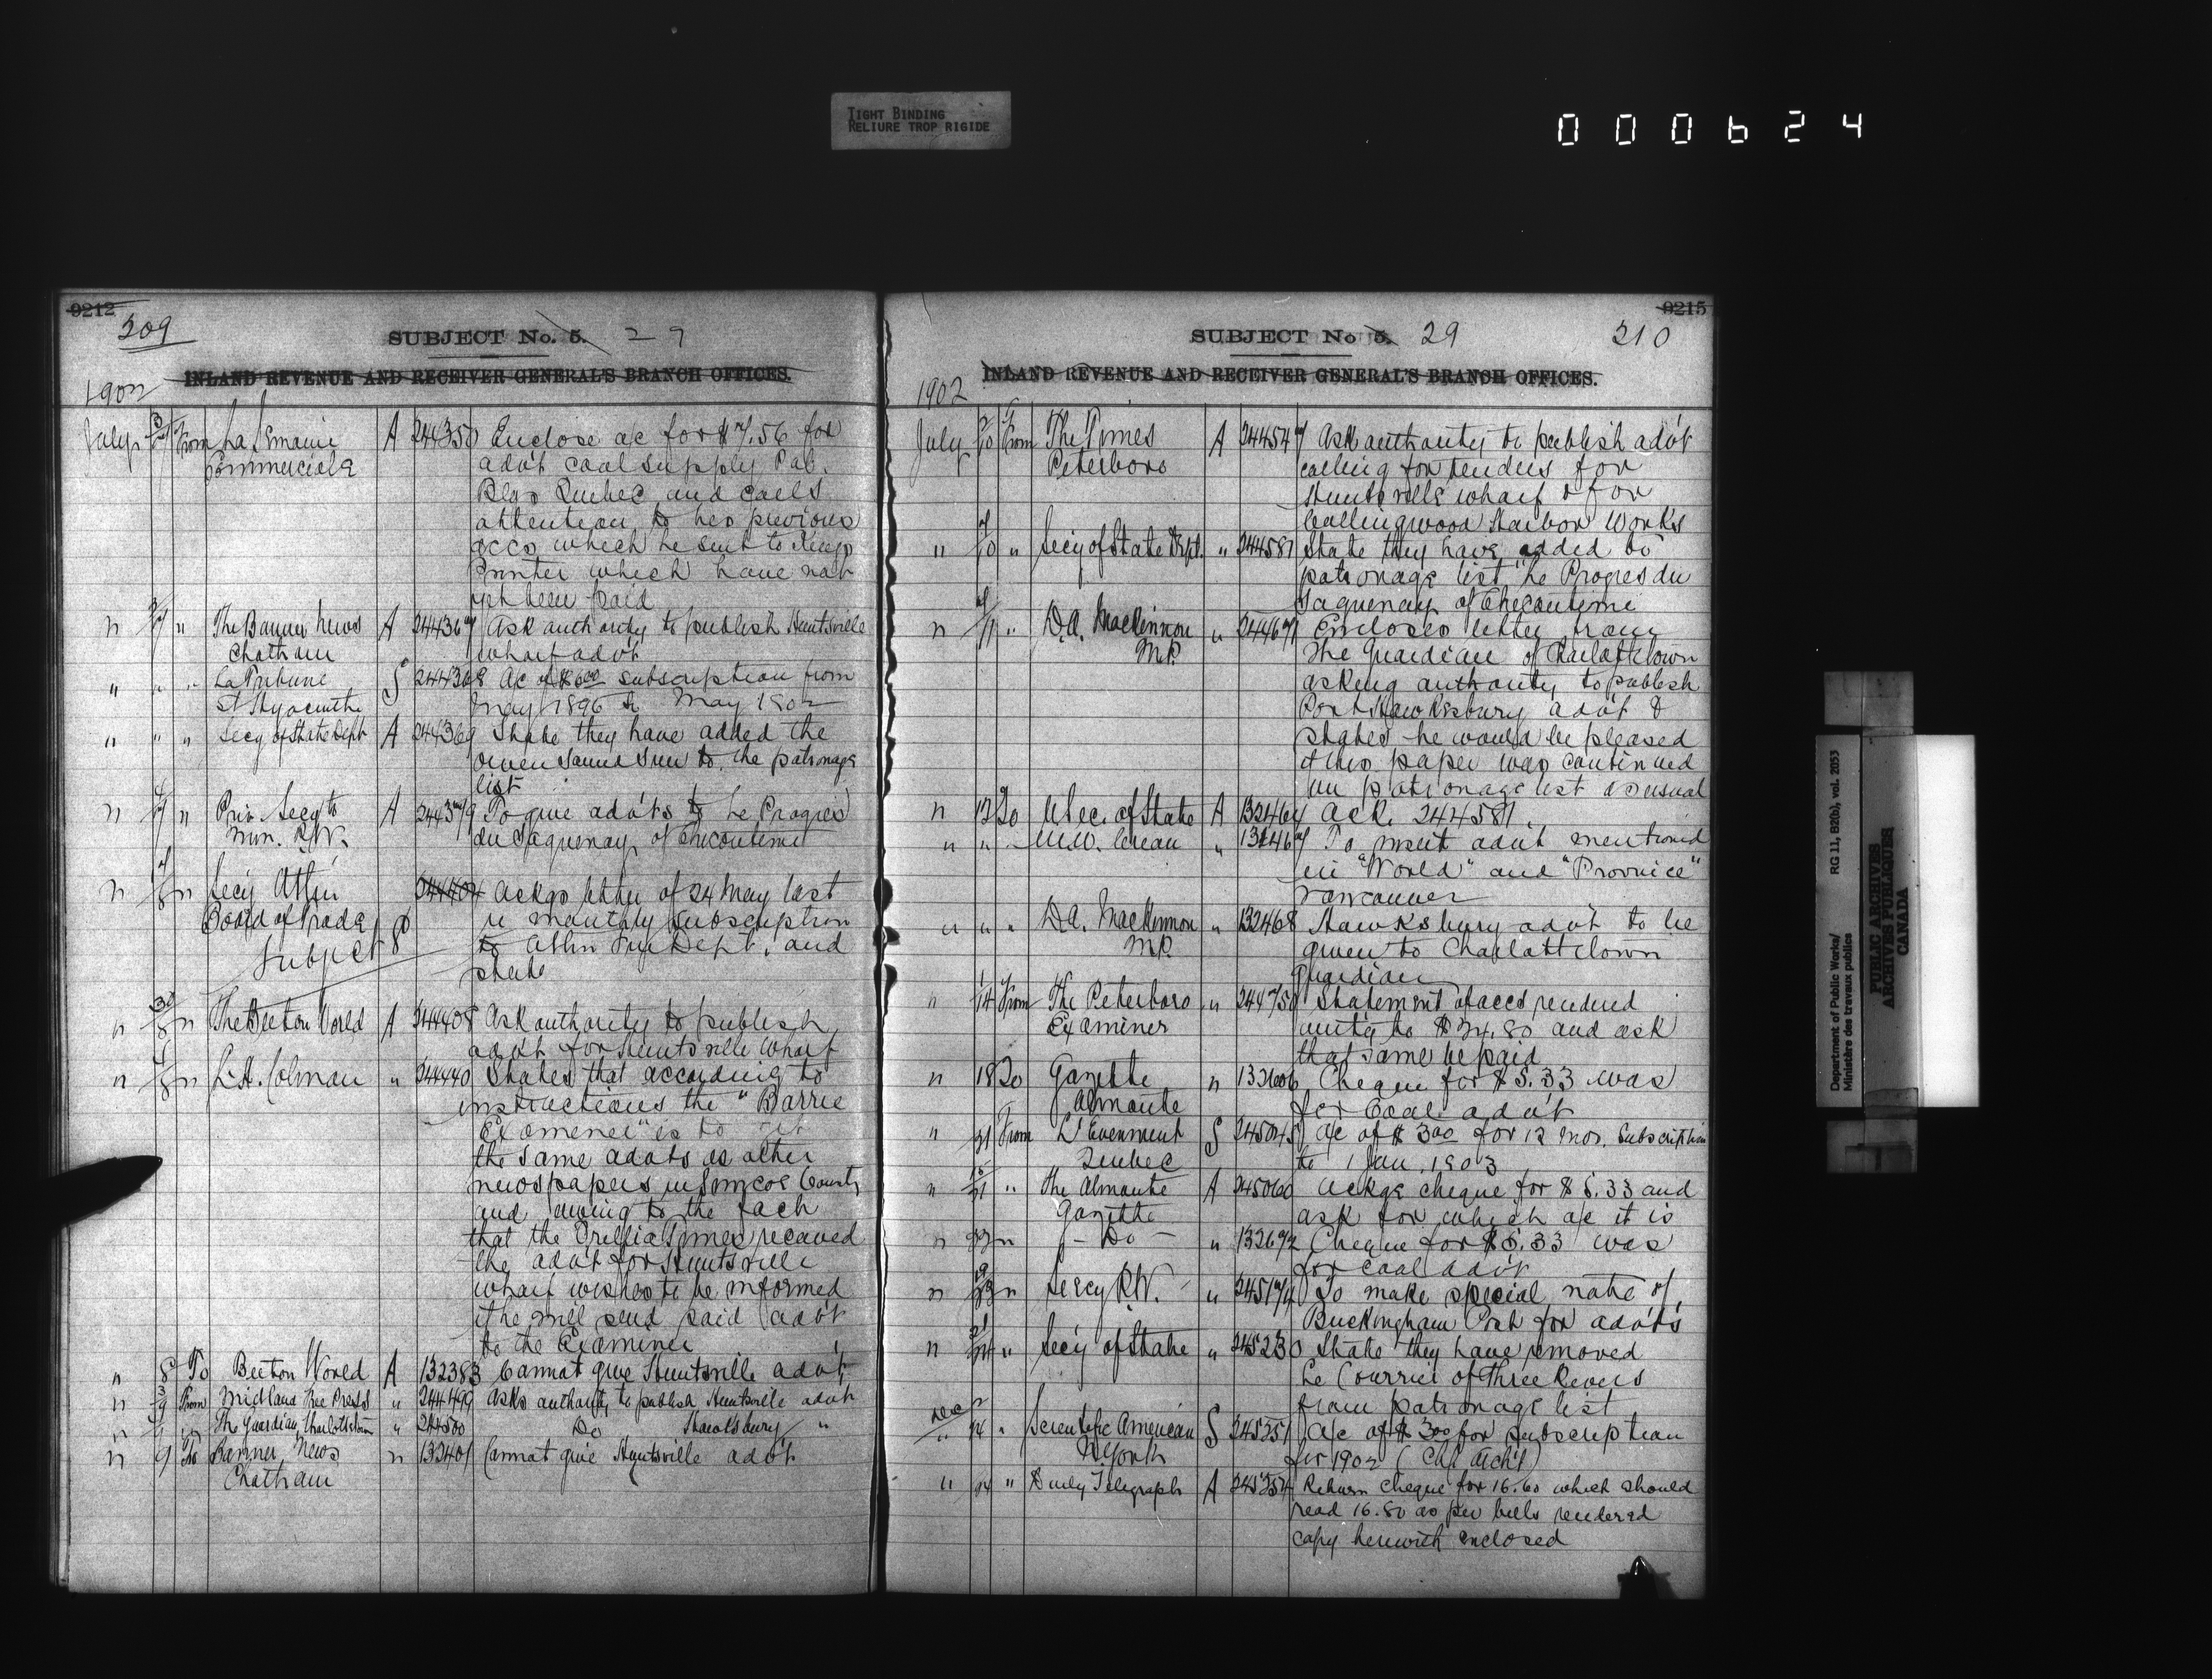 TIGHT BINDING
RELIURE TROP RIGIDE
000624
9212
209
SUBJECT No. 5. 29
INLAND REVENUE AND RECEIVER GENERAL'S BRANCH OFFICES.
1902
July From La Semaine A 244350 Enclose a/c for $7.56 for
Commerciale advt coal supply Pub.
Blgs Quebec and calls
attention to his previous
accs which he sent to Kings
Printer which have not
yet been paid
" " The Banner News A 244367 Ask authority to publish Huntsville
Chatham wharf advt
" " " La Tribune S 244368 a/c of $6.00 subscription from
St Hyacinthe May 1896 to May 1902
" " " Secy of State Dept A 244369 State they have added the
Owen Sound Sun to the patronage
list
" " Priv. Secy to A 244379 To give advts to Le Progres
Min. P.W. du Saguenay of Chicoutimi
" " Secy Atlin 244404 Ackgs letter of 24 May last
Board of Trade re monthly subscription
Subject 8 to Atlin for Dept. and
state
" " The Beeton World A 244408 Ask authority to publish
advt for Huntsville wharf
" " L.H. Colman " 244440 States that according to
instructions the "Barrie
Examiner" is to get
the same advts as other
newspapers in Simcoe County
and owing to the fact
that the Orillia Times received
the advt for Huntsville
wharf wishes to be informed
if he will send said advt
to the Examiner
" 8 To Beeton World A 132383 Cannot give Huntsville advt
" From Midland Free Press " 244499 Asks authority to publish Huntsville advt
" " The Guardian Charlottetown " 244500 Do Hawksbury "
" 9 To Banner News " 132401 Cannot give Huntsville advt
Chatham
9215
SUBJECT No. 5. 29 210
INLAND REVENUE AND RECEIVER GENERAL'S BRANCH OFFICES.
1902
July 10 From The Times A 244547 Ask authority to publish advt
Peterboro calling for tenders for
Huntsville wharf & for
Collingwood Harbor Works
" 10 " Secy of State Dept. " 244581 State they have added to
patronage list Le Progres du
Saguenay of Chicoutimi
" 11 " D.A. MacKinnon " 244671 Encloses letter from
M.P. The Guardian of Charlottetown
asking authority to publish
Port Hawksbury advt &
states he would be pleased
if this paper was continued
on patronage list as usual
" 12 To U Sec. of State A 132464 Ack. 244581.
" " W.W. Creau " 132467 To insert advt mentioned
in "World" and "Province"
Vancouver
" " " D.A. MacKinnon " 132468 Hawksbury advt to be
M.P. given to Charlottetown
Guardian
" 14 From The Peterboro " 244750 Statement of accs rendered
Examiner amtg to $74.80 and ask
that same be paid
" 18 To Gazette " 132606 Cheque for $5.33 was
Almonte for Coal advt
" 21 From L'Evenment S 245045 a/c of $3.00 for 12 mos. Subscription
Quebec to 1 Jan. 1903
" 21 " The Almonte A 245060 Ackgs cheque for $5.33 and
Gazette ask for which a/c it is
" 23 " - Do - " 132672 Cheque for $5.33 was
for coal advt
" 23 " Secy P.W. " 245174 To make special note of
Buckingham Post for advts
" 24 " Secy of State " 245230 State they have removed
Le Courrier of Three Rivers
from patronage list
Dec " " Scientific American S 245351 a/c of $3.00 for subscription
N York for 1902
" 24 " Daily Telegraph A 245354 Return cheque for 16.60 which should
read 16.80 as per bills rendered
copy herewith enclosed
Department of Public Works/
Ministère des travaux publics
RG 11, B2(b), vol. 2053
PUBLIC ARCHIVES
ARCHIVES PUBLIQUES
CANADA